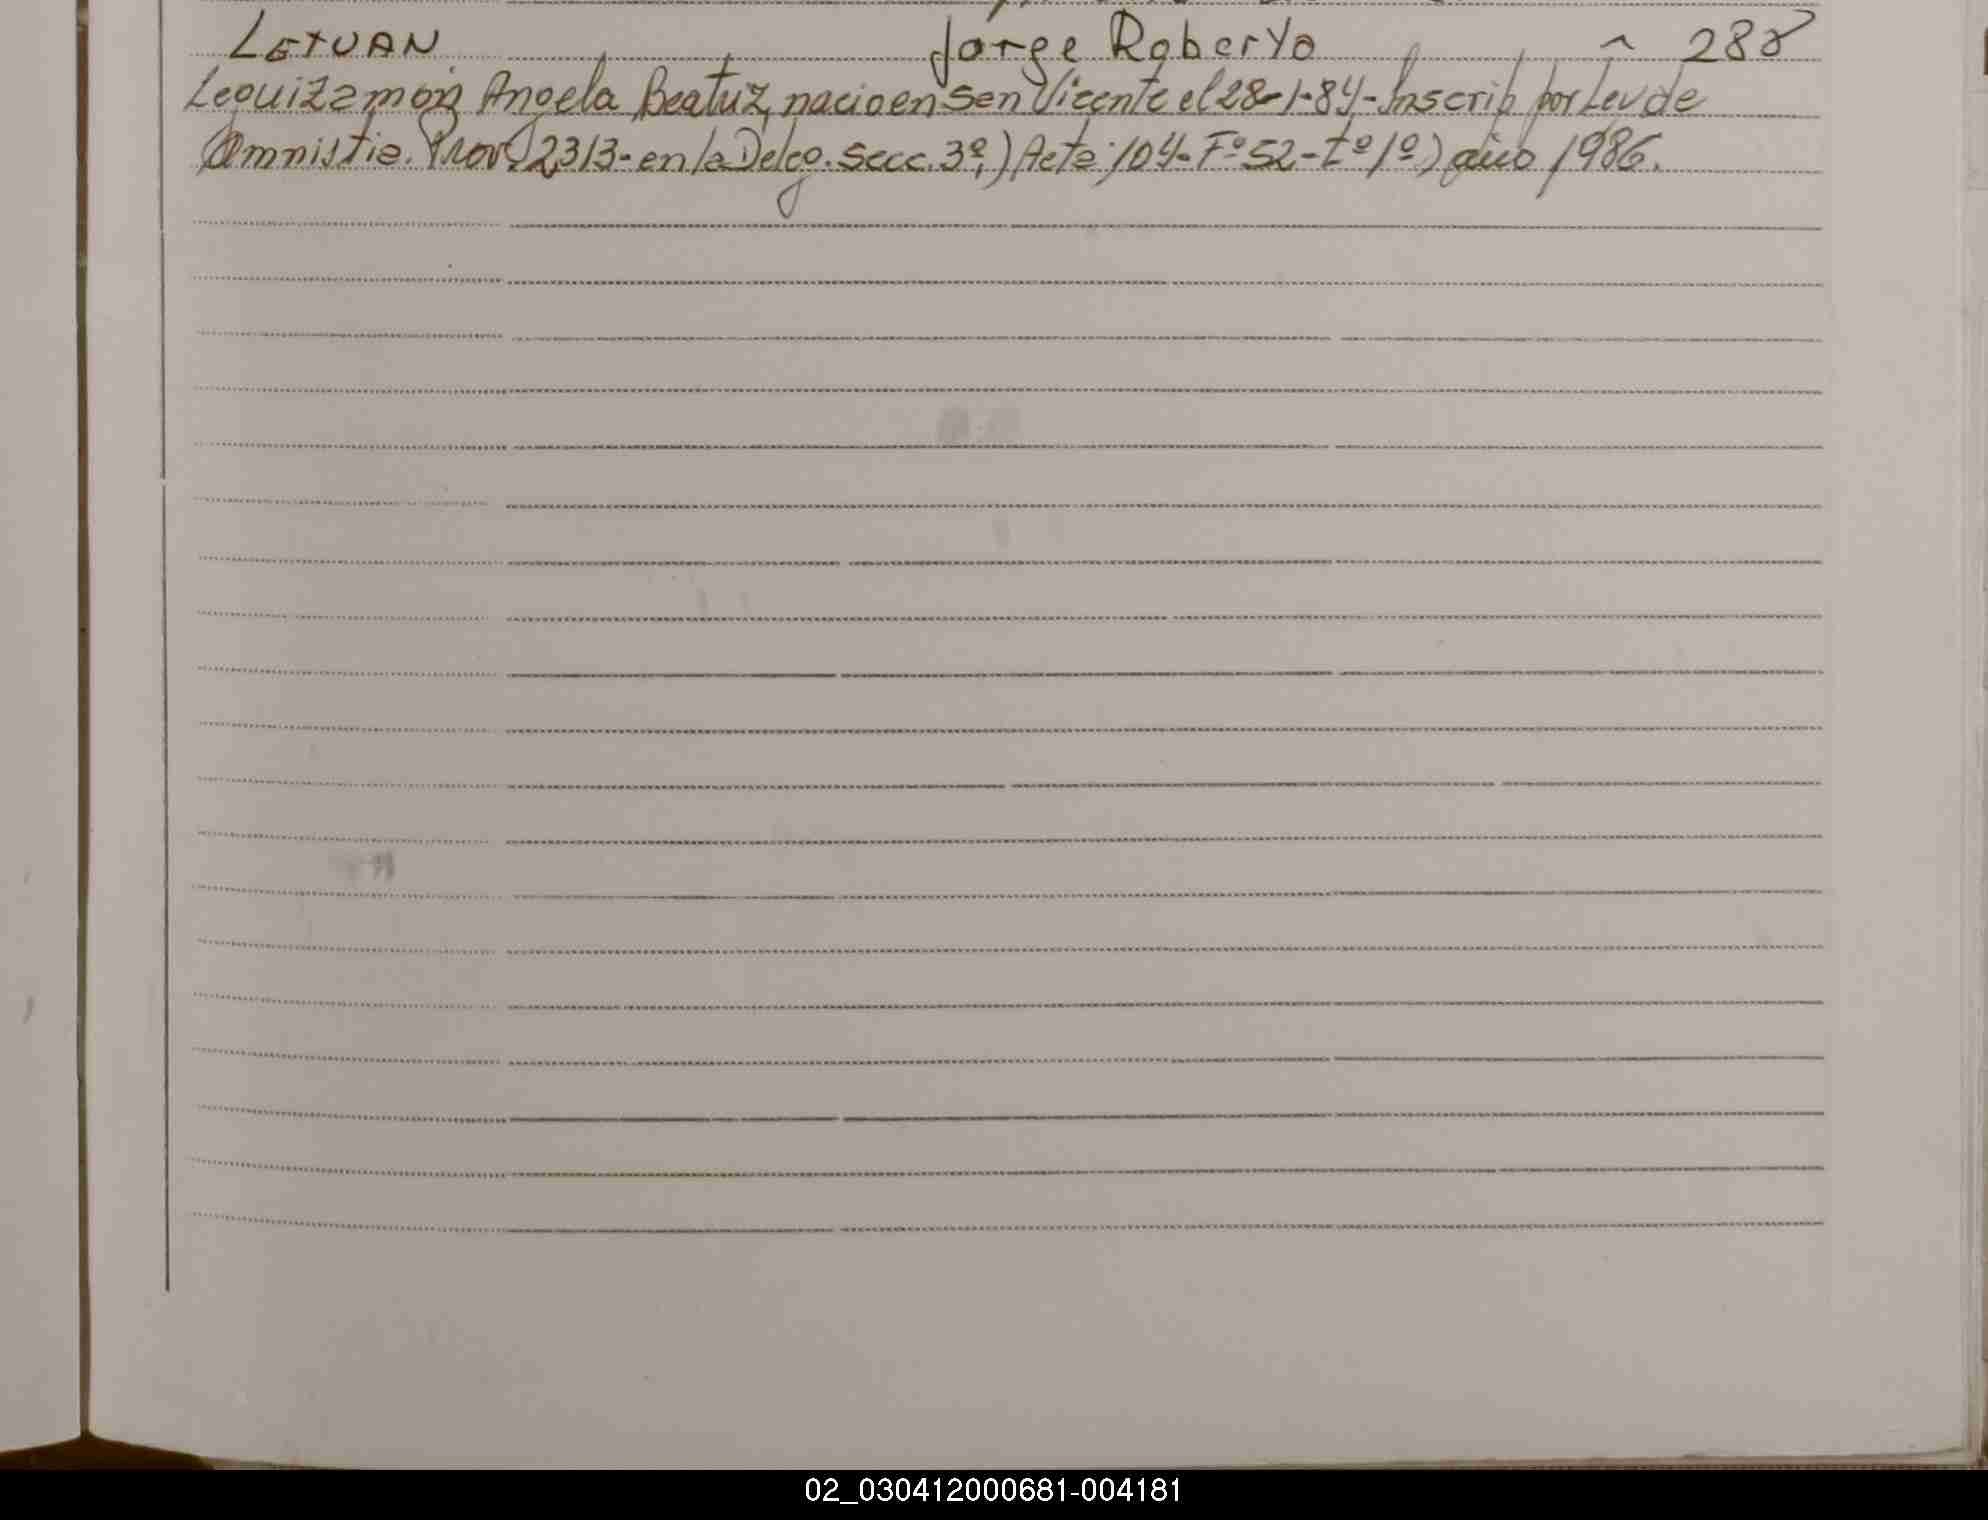 LETUAN Jorge Roberto " 288
Leguizamón, Angela Beatriz, nacio en San Vicente el 28-1-84- Inscrip por Ley de
Amnistia. Prov. 2313- en la Deleg. Secc. 3º,) Acta: 104- Fº 52- tº 1º) año 1986.
02_030412000681-004181